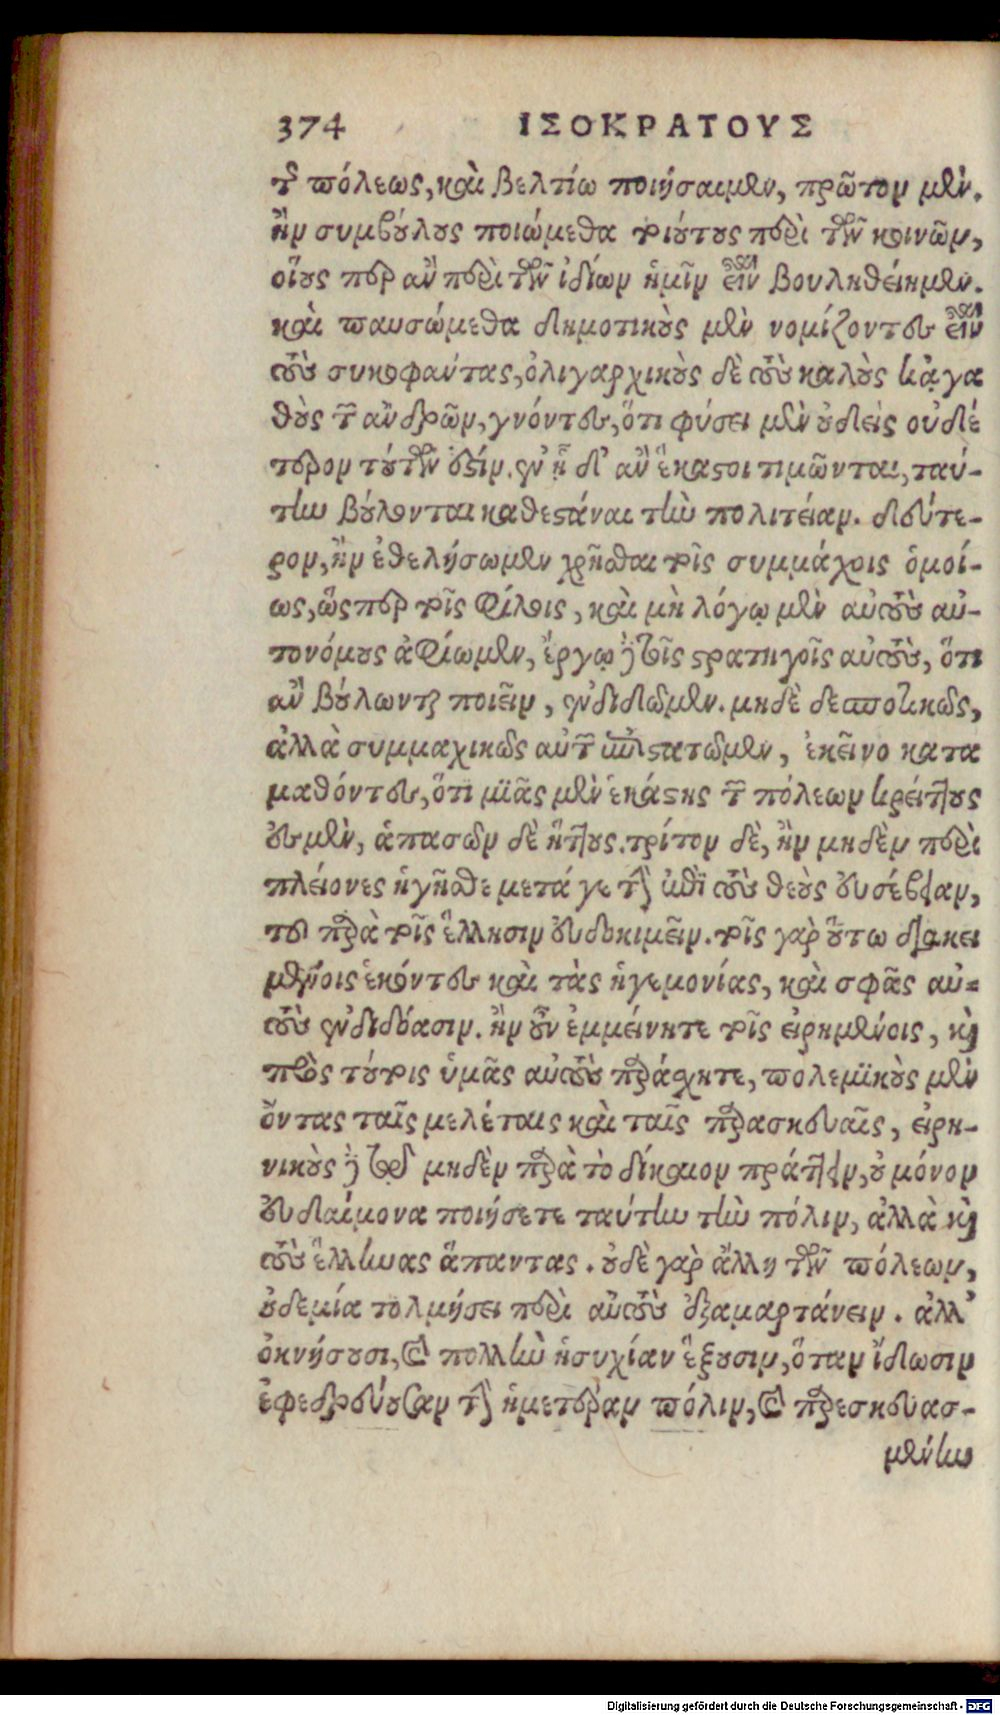 374 ΙΣΟΚΡΑΤΟΥΣ
τῆς πόλεως, καὶ βελτίω ποιήσαιμεν, πρῶτον μὲν.
ἢν συμβούλους ποιώμεθα τοιούτους περὶ τῶν κοινῶν,
οἵους περ ἂν περὶ τῶν ἰδίων ἡμῖν εἶναι βουληθείημεν.
καὶ παυσώμεθα δημοτικοὺς μὲν νομίζοντες εἶναι
τοὺς συκοφάντας, ὀλιγαρχικοὺς δὲ τοὺς καλοὺς κἀγα
θοὺς τῶν ἀνδρῶν, γνόντες, ὅτι φύσει μὲν οὐδεὶς οὐδέ
τερον τούτων ἐστίν. ἐν ᾗ δ' ἂν ἕκαστοι τιμῶνται, ταύ-
την βούλονται καθεστάναι τὴν πολιτείαν. δεύτε-
ρον, ἢν ἐθελήσωμεν χρῆσθαι τοῖς συμμάχοις ὁμοί-
ως, ὥσπερ τοῖς φίλοις, καὶ μὴ λόγῳ μὲν αὐτοὺς αὐ-
τονόμους ἀφίωμεν, ἔργῳ δὲ τοῖς στρατηγοῖς αὐτοὺς, ὅτι
ἂν βούλωνται ποιεῖν, ἐνδιδῶμεν. μηδὲ δεσποτικῶς,
ἀλλὰ συμμαχικῶς αὐτῶν ἐπιστατῶμεν, ἐκεῖνο κατα
μαθόντες, ὅτι μιᾶς μὲν ἑκάστης τῶν πόλεων κρείττους
ἐσμὲν, ἁπασῶν δὲ ἥττους. τρίτον δὲ, ἢν μηδὲν περὶ
πλείονος ἡγῆσθε μετά γε τὴν περὶ τοὺς θεοὺς εὐσέβειαν,
τοῦ παρὰ τοῖς ἕλλησιν εὐδοκιμεῖν. τοῖς γὰρ οὕτω διακει
μένοις ἑκόντες καὶ τὰς ἡγεμονίας, καὶ σφᾶς αὐ-
τοὺς ἐνδιδόασιν. ἢν οὖν ἐμμείνητε τοῖς εἰρημένοις, καὶ
πρὸς τούτοις ὑμᾶς αὐτοὺς παράσχητε, πολεμικοὺς μὲν
ὄντας ταῖς μελέταις καὶ ταῖς παρασκευαῖς, εἰρη-
νικοὺς δὲ τῷ μηδὲν παρὰ τὸ δίκαιον πράττειν, οὐ μόνον
εὐδαίμονα ποιήσετε ταύτην τὴν πόλιν, ἀλλὰ καὶ
τοὺς ἕλληνας ἅπαντας. οὐδὲ γὰρ ἄλλη τῶν πόλεων,
οὐδεμία τολμήσει περὶ αὐτοὺς ἐξαμαρτάνειν. ἀλλ'
ὀκνήσουσι, καὶ πολλὴν ἡσυχίαν ἕξουσιν, ὅταν ἴδωσιν
ἐφεδρεύουσαν τὴν ἡμετέραν πόλιν, καὶ παρεσκευασ-
μένην
Digitalisierung gefördert durch die Deutsche Forschungsgemeinschaft - DFG